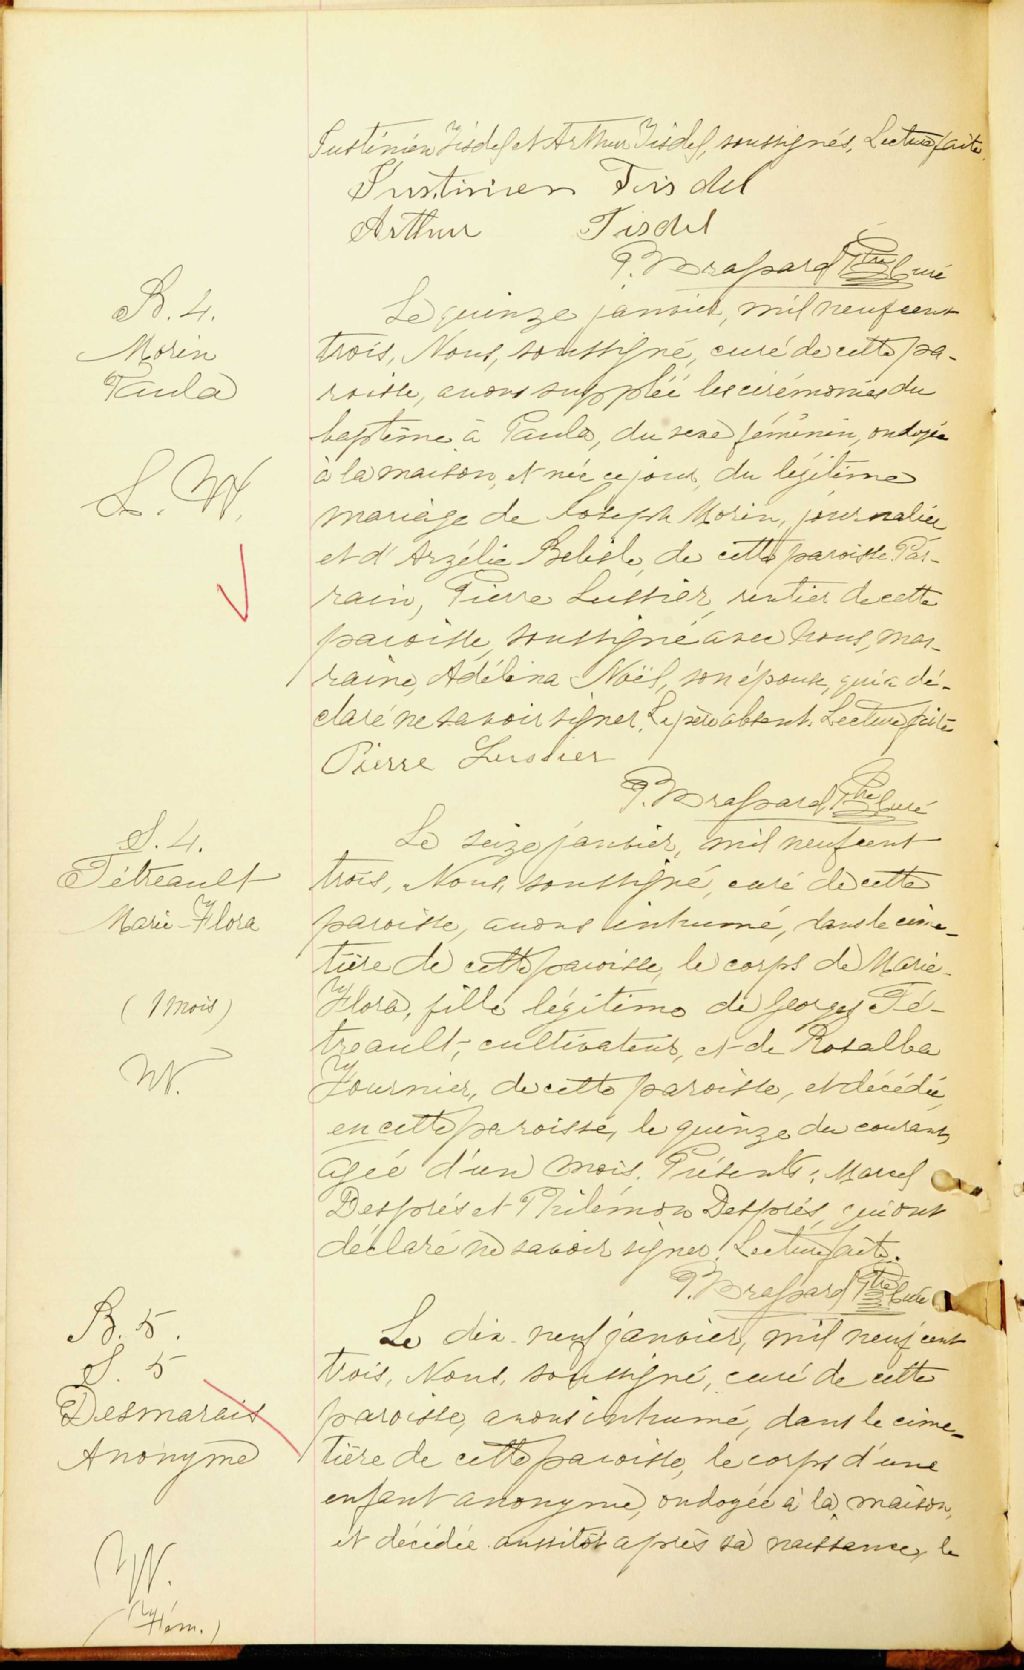 Justinien Tisdel et Arthur Tisdel, soussignés, Lecture faite.
Justinien Tisdel
Arthur Tisdel
Ptre Curé
B. 4.
Morin
Paula
L. W.
Le quinze janvier, mil neuf cent
trois, Nous, soussigné, curé de cette pa-
roisse, avons suppléé les cérémonies du
baptême à Paula, du sexe féminin, ondoyée
à la maison, et née ce jour, du légitime
mariage de Joseph Morin, journalier
et d'Arzélie Belisle, de cette paroisse. Par-
rain, Pierre Lussier, rentier de cette
paroisse, soussigné avec Nous, mar-
raine, Adélina Noël, son épouse, qui a dé-
claré ne savoir signer. Le père absent. Lecture faite
Pierre Lussier
Ptre Curé
S. 4.
Tétreault
Marie-Flora
(1 mois)
W.
Le seize janvier, mil neuf cent
trois, Nous, soussigné, curé de cette
paroisse, avons inhumé, dans le cime-
tière de cette paroisse, le corps de Marie-
Flora, fille légitime de Georges Té-
treault, cultivateur, et de Rosalba
Fournier, de cette paroisse, et décédée,
en cette paroisse, le quinze du courant,
âgée d'un mois. Présents: Marcel
Després et Philémon Després, qui ont
déclaré ne savoir signer. Lecture faite.
Ptre Curé
B. 5.
S. 5
Desmarais
Anonyme
W.
(Fém.)
Le dix-neuf janvier, mil neuf cent
trois, Nous, soussigné, curé de cette
paroisse, avons inhumé, dans le cime-
tière de cette paroisse, le corps d'une
enfant anonyme, ondoyée à la maison,
et décédée aussitôt après sa naissance, le